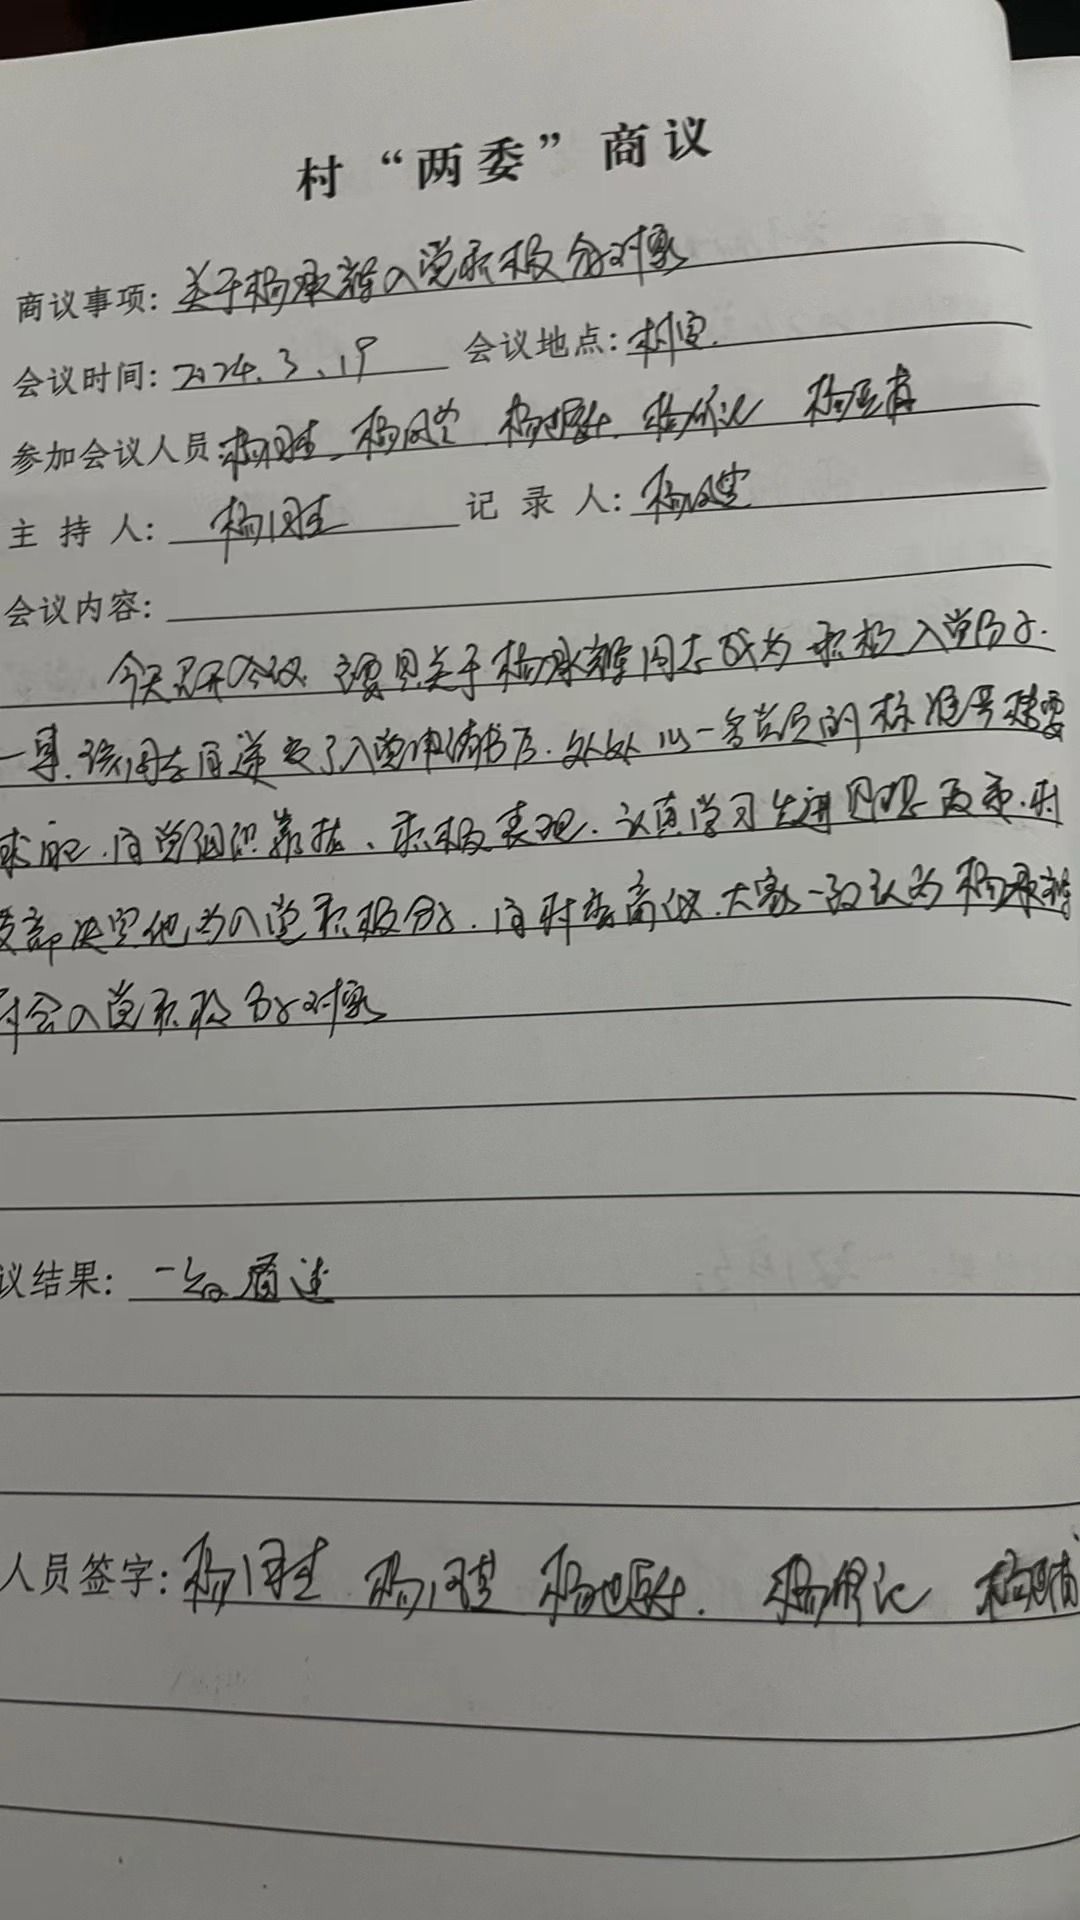 村“两委”商议
商议事项：关于杨承辉入党积极分子对象
会议时间：2024.3.19 会议地点：村室.
参加会议人员：杨 杨 杨 杨 杨
主持人：杨 记录人：杨
会议内容：
今天召开会议 主要是关于杨承辉同志成为积极入党分子.
一事.该同志自递交了入党申请书后.处处以一名党员的标准严格要
求自己.向党组织靠拢、积极表现.认真学习先进思想.村
支部决定他为入党积极分子.商议.大家一致认为杨承辉
入党积极分子对象
议结果：一致通过
人员签字：杨 杨 杨 杨 杨